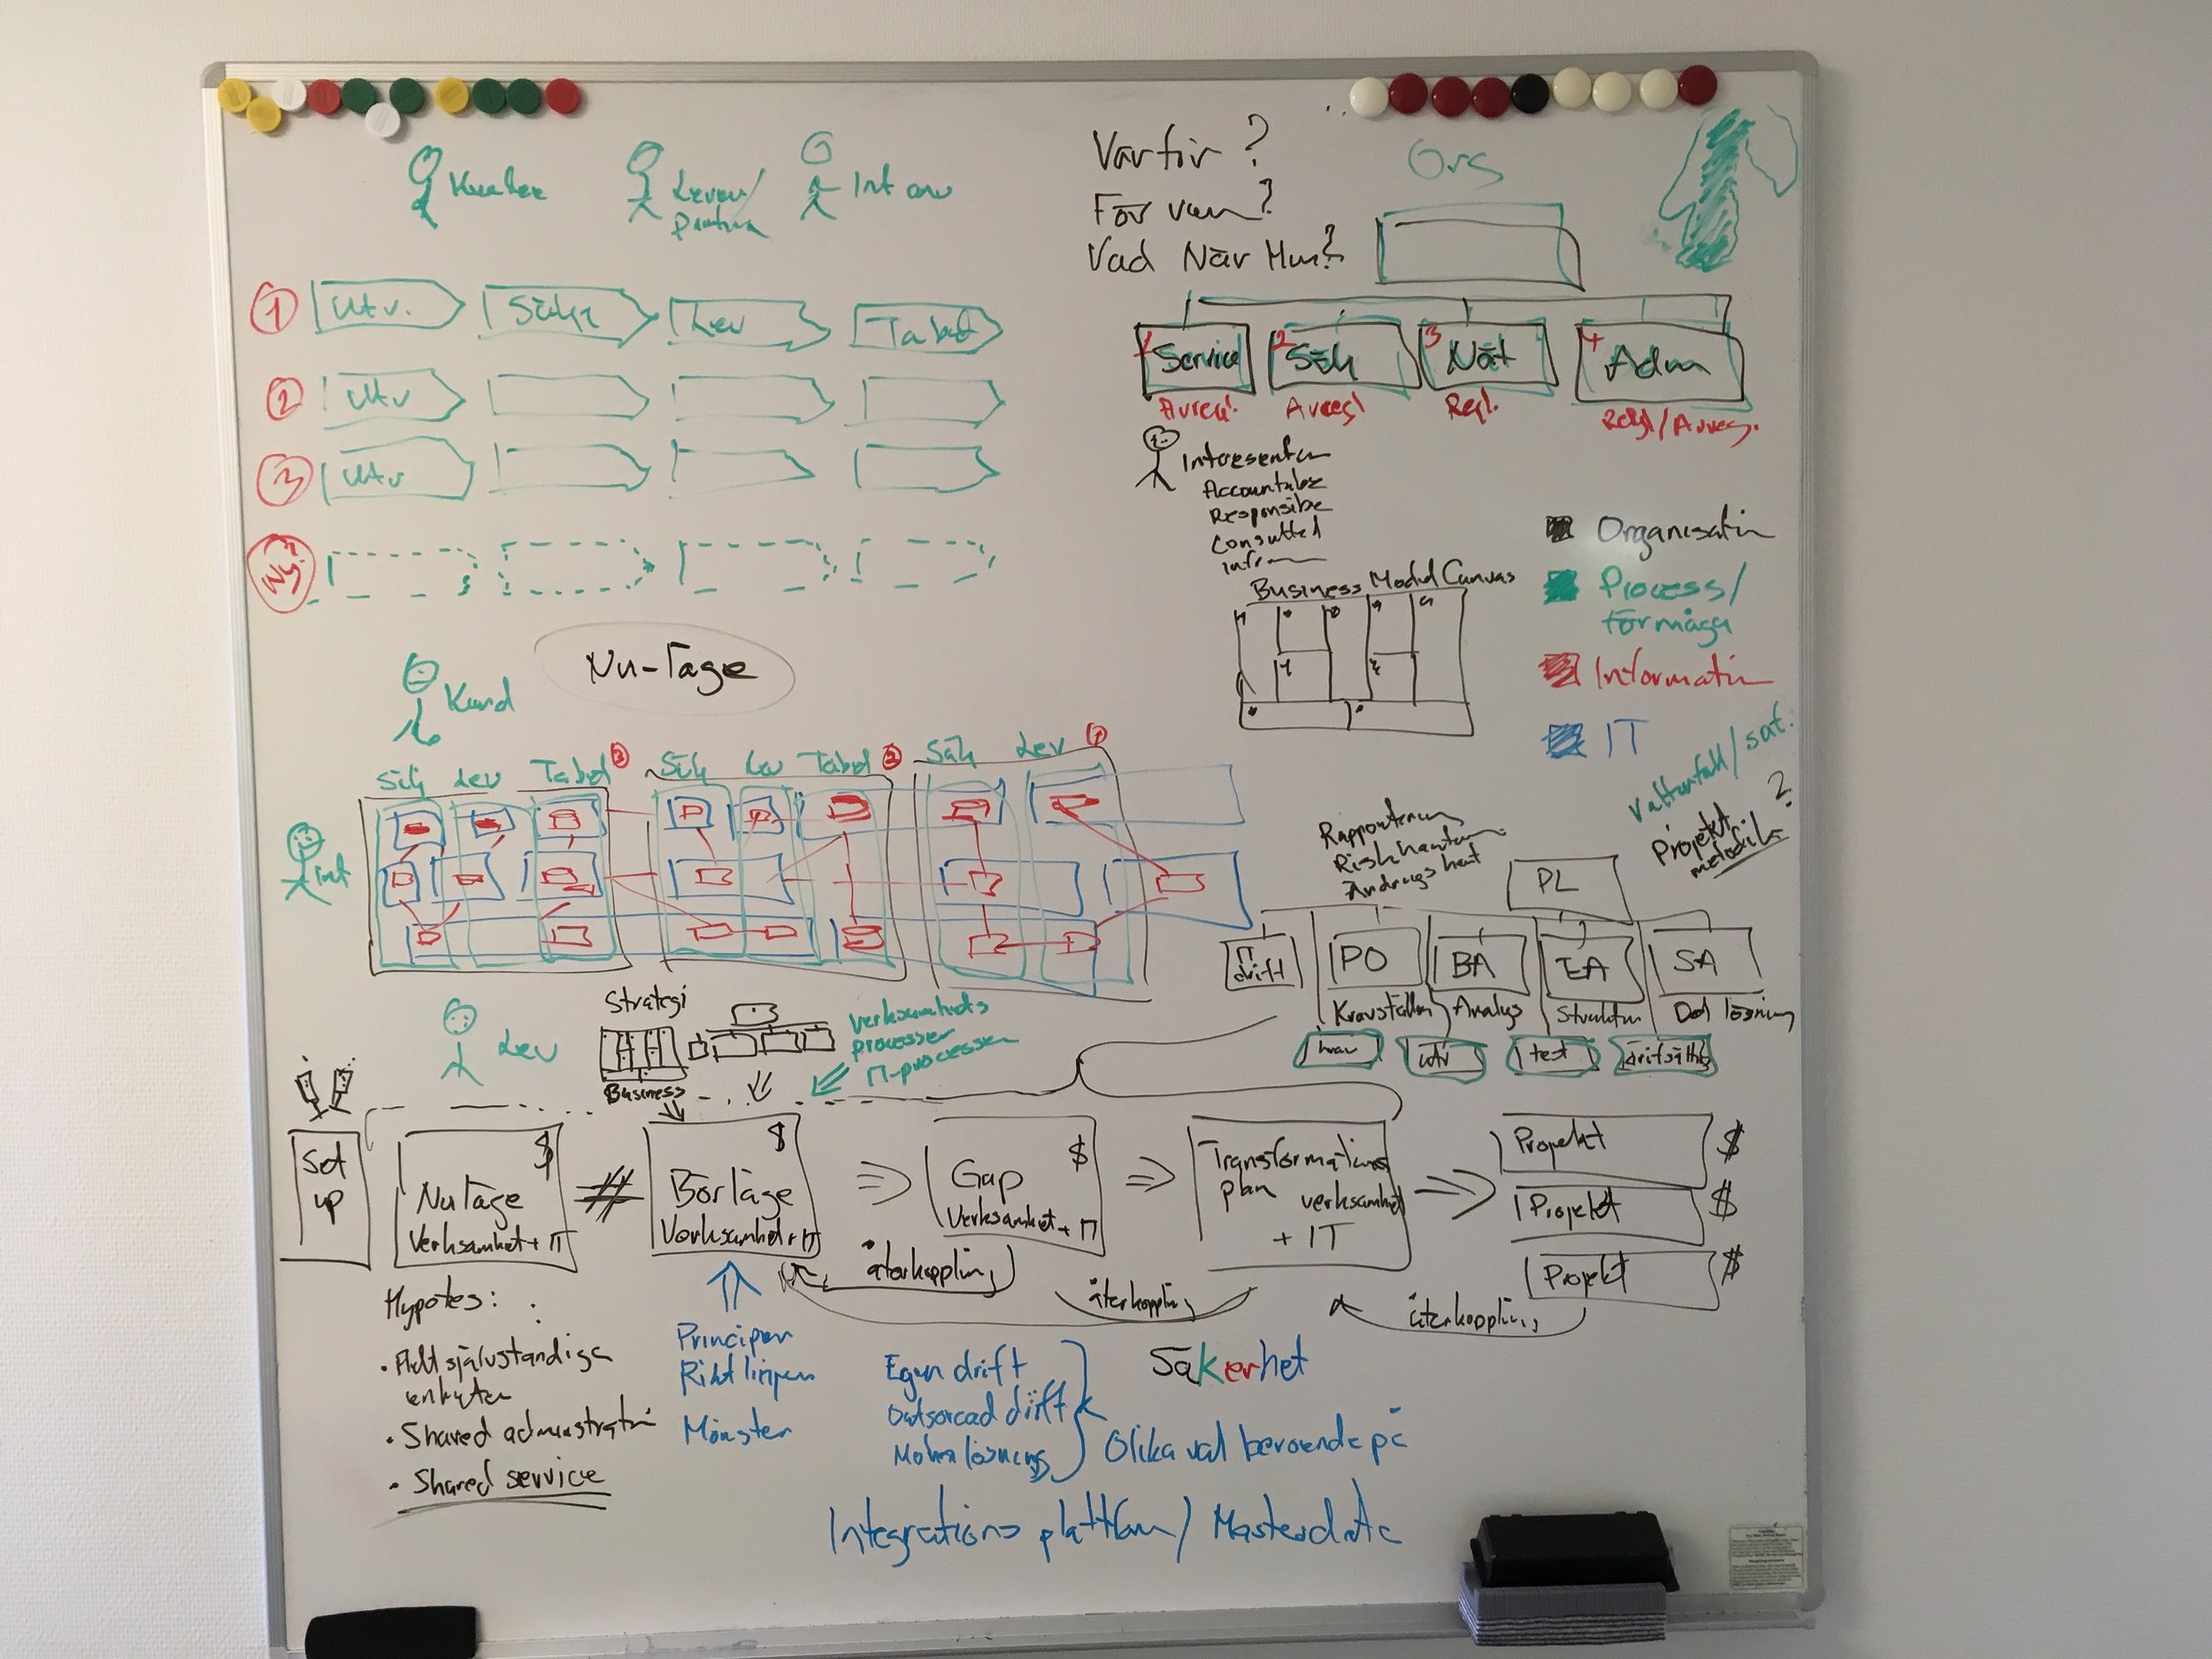 Kunder
Lever/
Partner
Int anv
Varför?
För vem?
Vad När Hur?
Org
1 Utv. Sälj Lev Tabet
2 Utv
3 Utv
Ny
1 Service
2 Sälj
3 Nät
4 Adm
Avregl.
Avregl
Regl.
Regl/Avreg.
Intressenter
Accountable
Responsible
Consulted
Inform
Business Model Canvas
Organisation
Process/
förmåga
Information
IT
Nu-läge
Kund
Sälj Lev Tabet 3
Sälj Lev Tabet 2
Sälj Lev 1
Int
Lev
Vattenfall/
Projekt
metodik
?
Rapportering
Riskhantering
Ändringshant
PL
IT
drift
PO
BA
EA
SA
Kravställn
Analys
Struktur
Det lösning
krav
utv
test
driftsätt
Strategi
Business
Verksamhets
processer
IT-processer
Set
up
$
Nuläge
Verksamhet + IT
$
Börläge
Verksamhet + IT
$
Gap
Verksamhet + IT
Transformations
plan verksamhet
+ IT
Projekt $
Projekt $
Projekt $
återkoppling
återkoppling
återkoppling
Hypotes:
• Helt självständiga
enheter
• Shared administration
• Shared service
Principer
Riktlinjer
Mönster
Egen drift
Outsorcad drift
Molnlösning
Säkerhet
Olika val beroende på
Integrations plattform / Masterdata